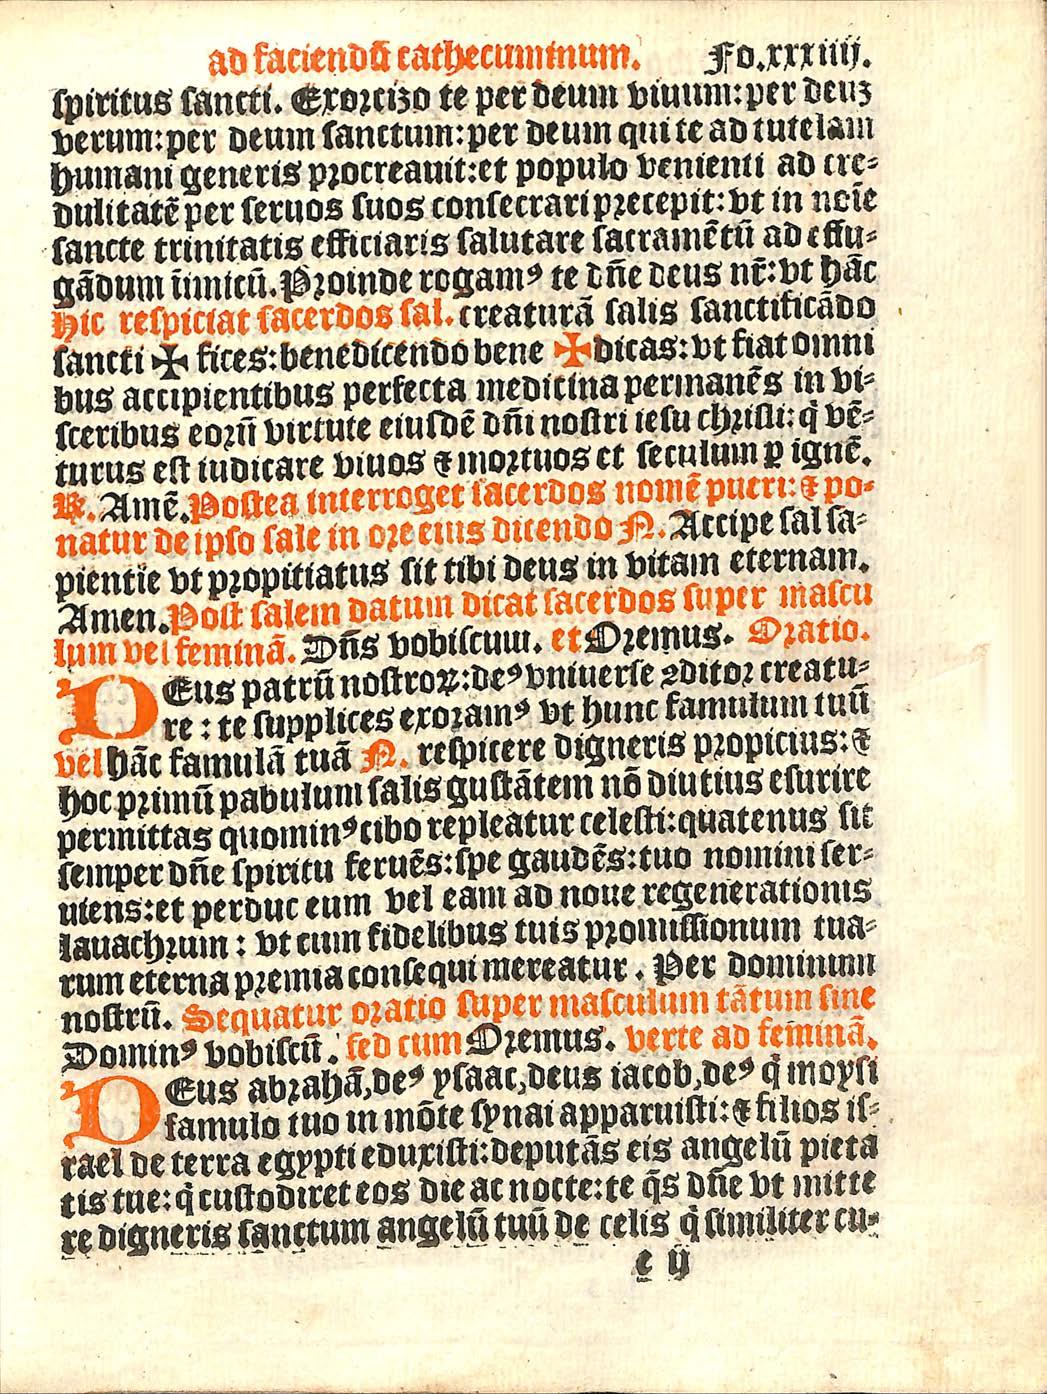 ad faciendū cathecuminum. Fo.xxxiiij.
spiritus sancti. Exorcizo te per deum viuum:per deuz
verum:per deum sanctum:per deum qui te ad tutelam
humani generis procreauit:et populo venienti ad cre-
dulitatē per seruos suos consecrari precepit:vt in noīe
sancte trinitatis efficiaris salutare sacramētū ad effu-
gādum īimicū. Proinde rogamꝰ te dn̄e deus nr̄:vt hāc
Hic respiciat sacerdos sal. creaturā salis sanctificādo
sancti ✠ fices:benedicendo bene ✠ dicas:vt fiat omni
bus accipientibus perfecta medicina permanēs in vi-
sceribus eorū virtute eiusdē dn̄i nostri iesu christi:q̄ vē-
turus est iudicare viuos ⁊ mortuos et seculum ꝑ ignē.
℞. Amē. Postea interroget sacerdos nomē pueri:⁊ po-
natur de ipso sale in ore eius dicendo N. Accipe sal sa-
pientie vt propitiatus sit tibi deus in vitam eternam.
Amen. Post salem datum dicat sacerdos super mascu
lum vel feminā. Dn̄s vobiscum. et Oremus. Oratio.
DEus patrū nostroꝝ:deꝰ vniuerse ꝯditor creatu-
re : te supplices exoramꝰ vt hunc famulum tuū
vel hāc famulā tuā N. respicere digneris propicius:⁊
hoc primū pabulum salis gustātem nō diutius esurire
permittas quominꝰ cibo repleatur celesti:quatenus sit
semper dn̄e spiritu feruēs:spe gaudēs:tuo nomini ser-
uiens:et perduc eum vel eam ad noue regenerationis
lauachrum : vt cum fidelibus tuis promissionum tua-
rum eterna premia consequi mereatur . Per dominum
nostrū. Sequatur oratio super masculum tātum sine
Dominꝰ vobiscū . sed cum Oremus. verte ad feminā.
DEus abrahā,deꝰ ysaac,deus iacob,deꝰ q̄ moysi
famulo tuo in mōte synai apparuisti:⁊ filios is-
rael de terra egypti eduxisti:deputās eis angelū pieta
tis tue:q̄ custodiret eos die ac nocte:te q̄s dn̄e vt mitte
re digneris sanctum angelū tuū de celis q̄ similiter cu-
e ij